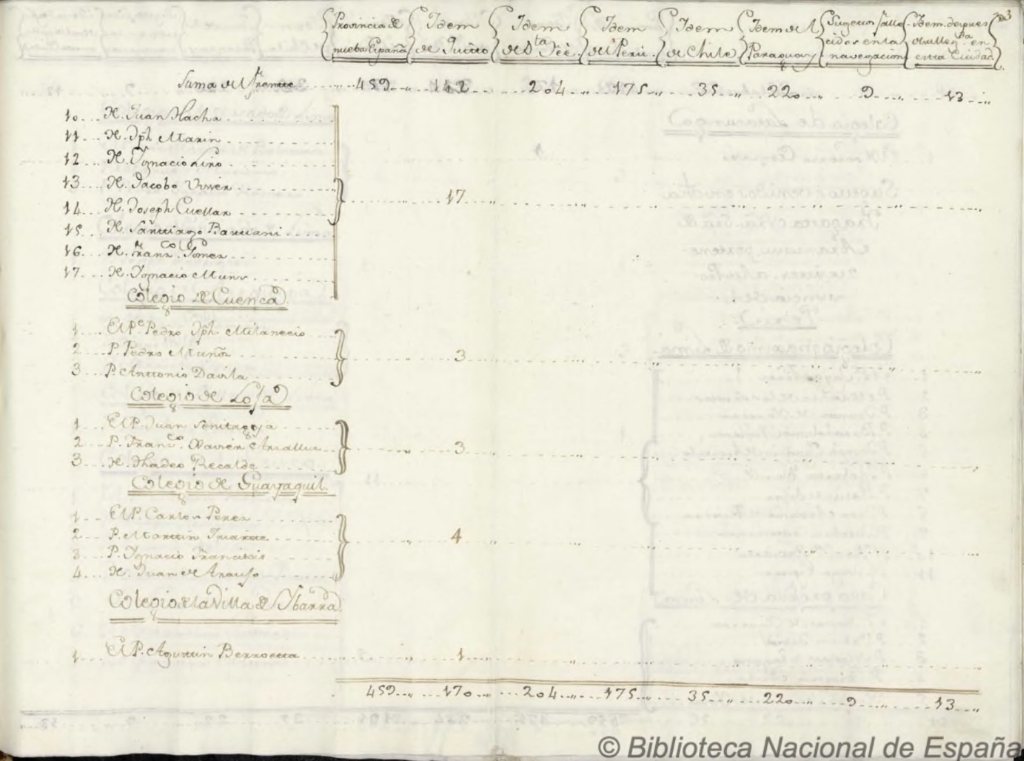 Provincia de nueba España
Idem de Quito
Idem de Sta. Feé
Idem del Perú
Idem de Chile
Idem del Paraguay
Sugetos falle cidos en la navegacion
Idem despues en esta Ciudad
Suma del frente 459 142 204 175 35 220 9 13
10 H. Juan
11 H. Jph Marin
12 H. Ygnacio Lyro
13 H. Jacobo
14 H. Joseph Cuellar
17
15 H. Santtiago Bastiani
16 H. Franco. Gomez
17 H. Ygnacio Muns
Colegio de Cuenca
1 El Pe. Pedro Jph Milanecio
2 P. Pedro Muñoz
3 P. Anttonio Davila
3
Colegio de Loja
1 El P. Juan
2 P. Franco. Xavier
3 H. Thadeo Recalde
3
Colegio de Guayaquil
1 El P. Carlos Perez
2 P. Marttin Yriarte
3 P. Ygnacio Francisis
4 H. Juan de Araujo
4
Colegio de la Villa de Ybarra
1 El P. Agustin Berroeta 1
459 170 204 175 35 220 9 13
© Biblioteca Nacional de España